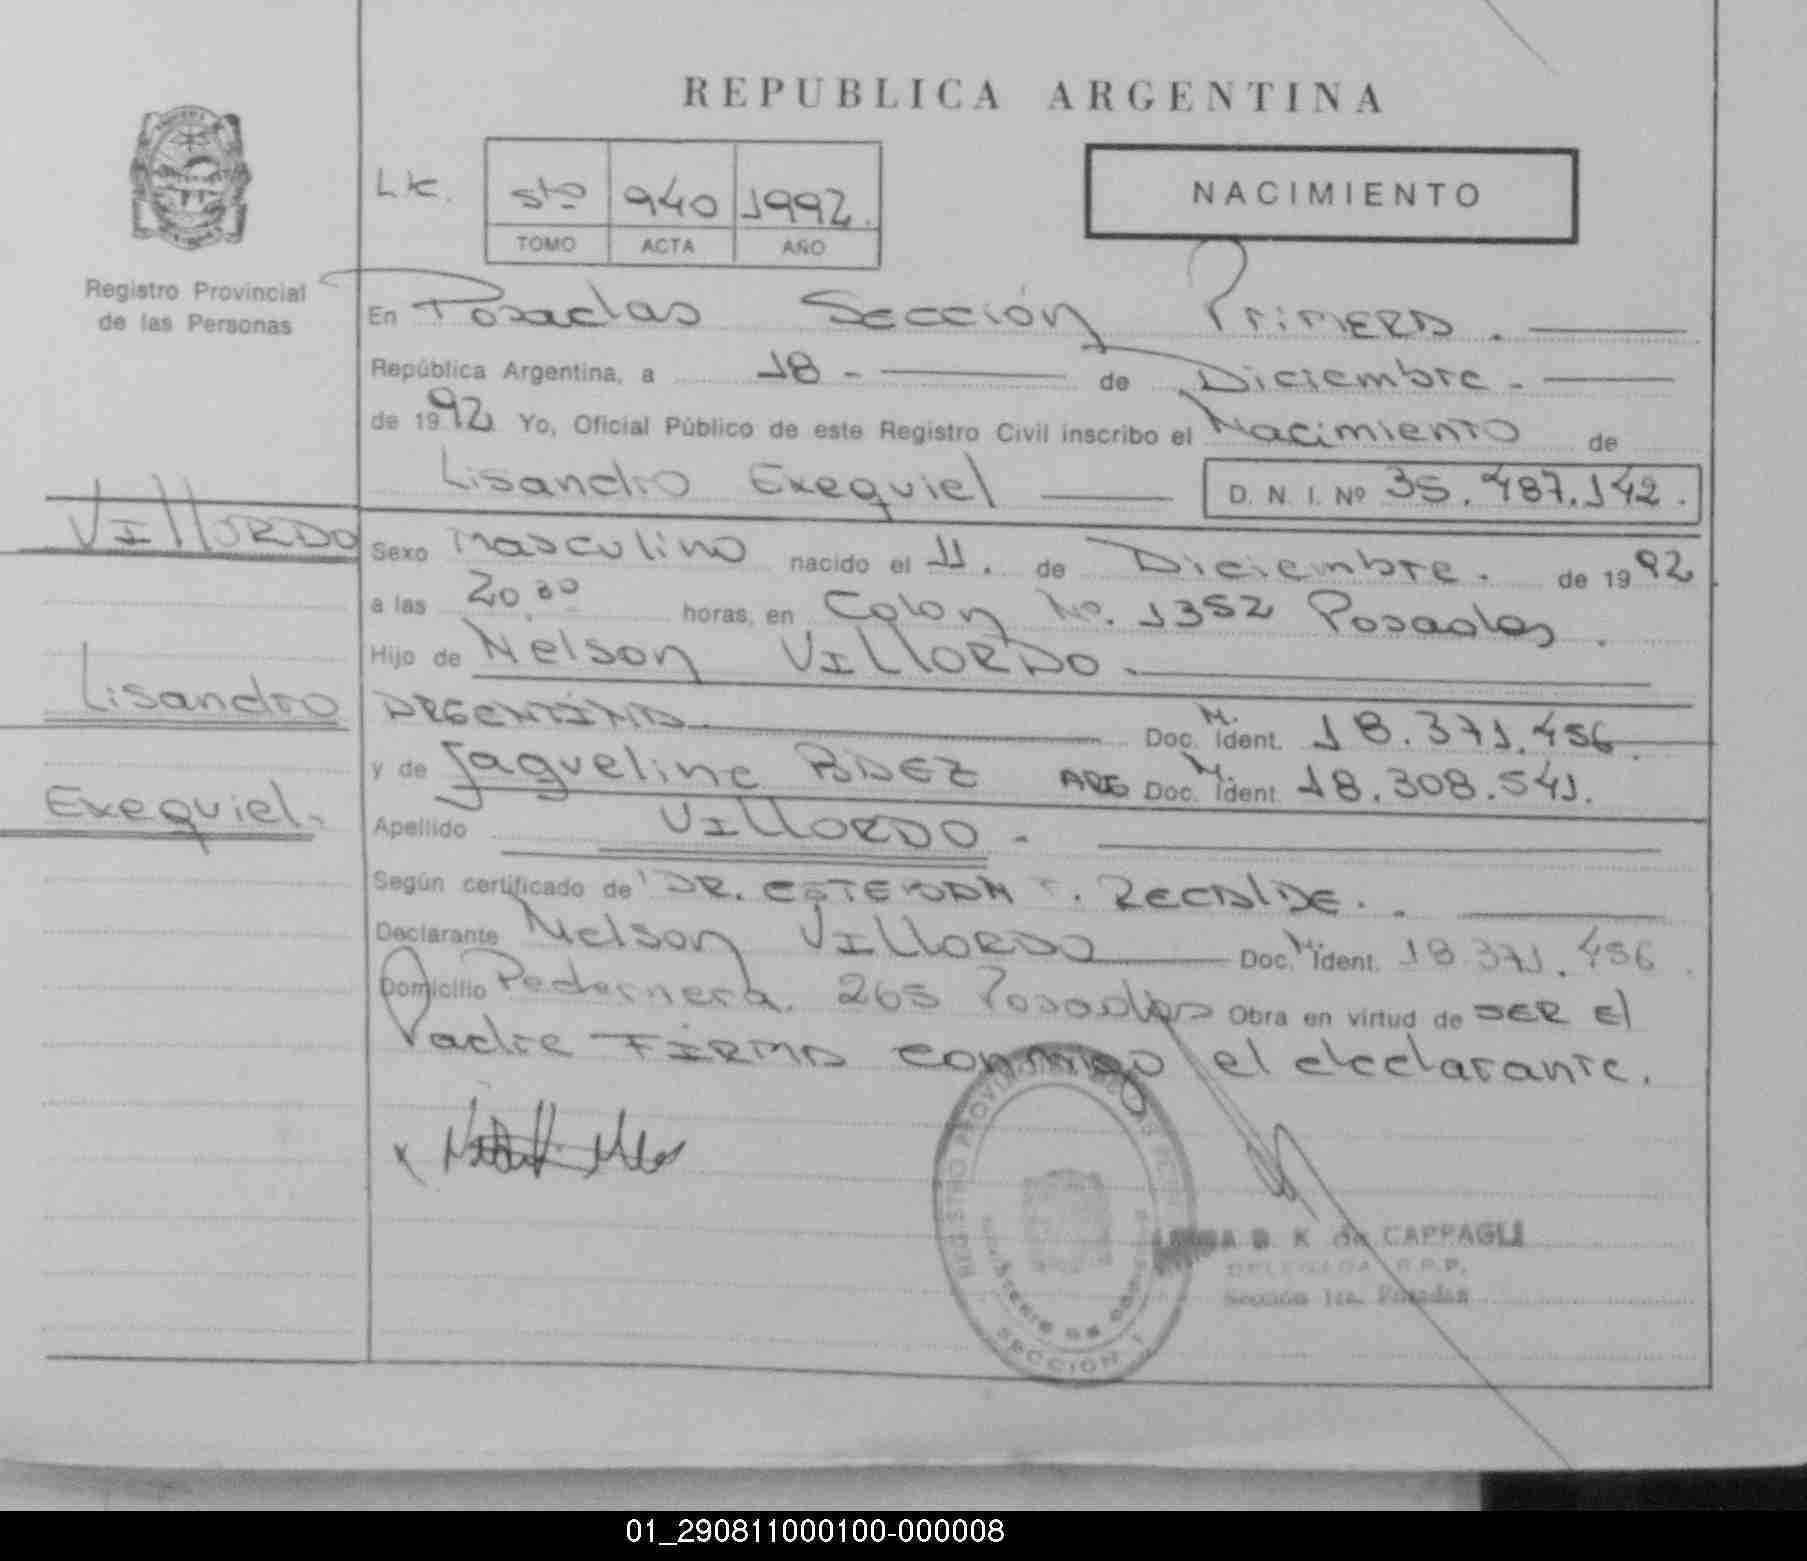 REPUBLICA ARGENTINA
Registro Provincial
de las Personas
Lic. 5to 940 1992.
TOMO ACTA AÑO
NACIMIENTO
En Posadas Sección Primera.
República Argentina, a 18 - de Diciembre -
de 1992 Yo, Oficial Público de este Registro Civil inscribo el Nacimiento de
Lisandro Exequiel D. N. I. Nº 35.487.142.
VIllORDO
Lisandro
Exequiel.
Sexo Masculino nacido el 11. de Diciembre. de 1992
a las 20,00 horas, en Colon No. 1352 Posadas.
Hijo de Nelson VIllORDO.
ARGENTINA. Doc. M. Ident. 18.371.456.
y de Jaqueline BAEZ ARG Doc. M. Ident. 18.308.541.
Apellido VIllORDO -
Según certificado de DR. ESTEBAN RECALDE.
Declarante Nelson VIllORDO Doc. M. Ident. 18.371.456.
Domicilio Pedernera. 265 Posadas Obra en virtud de SER El
Padre FIRMA conmigo el declarante.
REGISTRO PROVINCIAL DE LAS PERSONAS
SECCION 1
B. K de CAPPAGLI
DELEGADA R.P.P.
Sección 1ra. Posadas
01_290811000100-000008